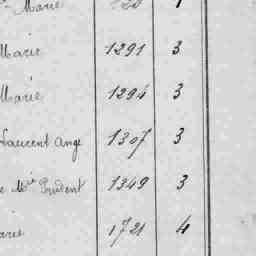 Marie
Marie 1291 3
Marie 1294 3
Laurent Ange 1307 3
e Mie Prudent 1349 3
arie 1721 4